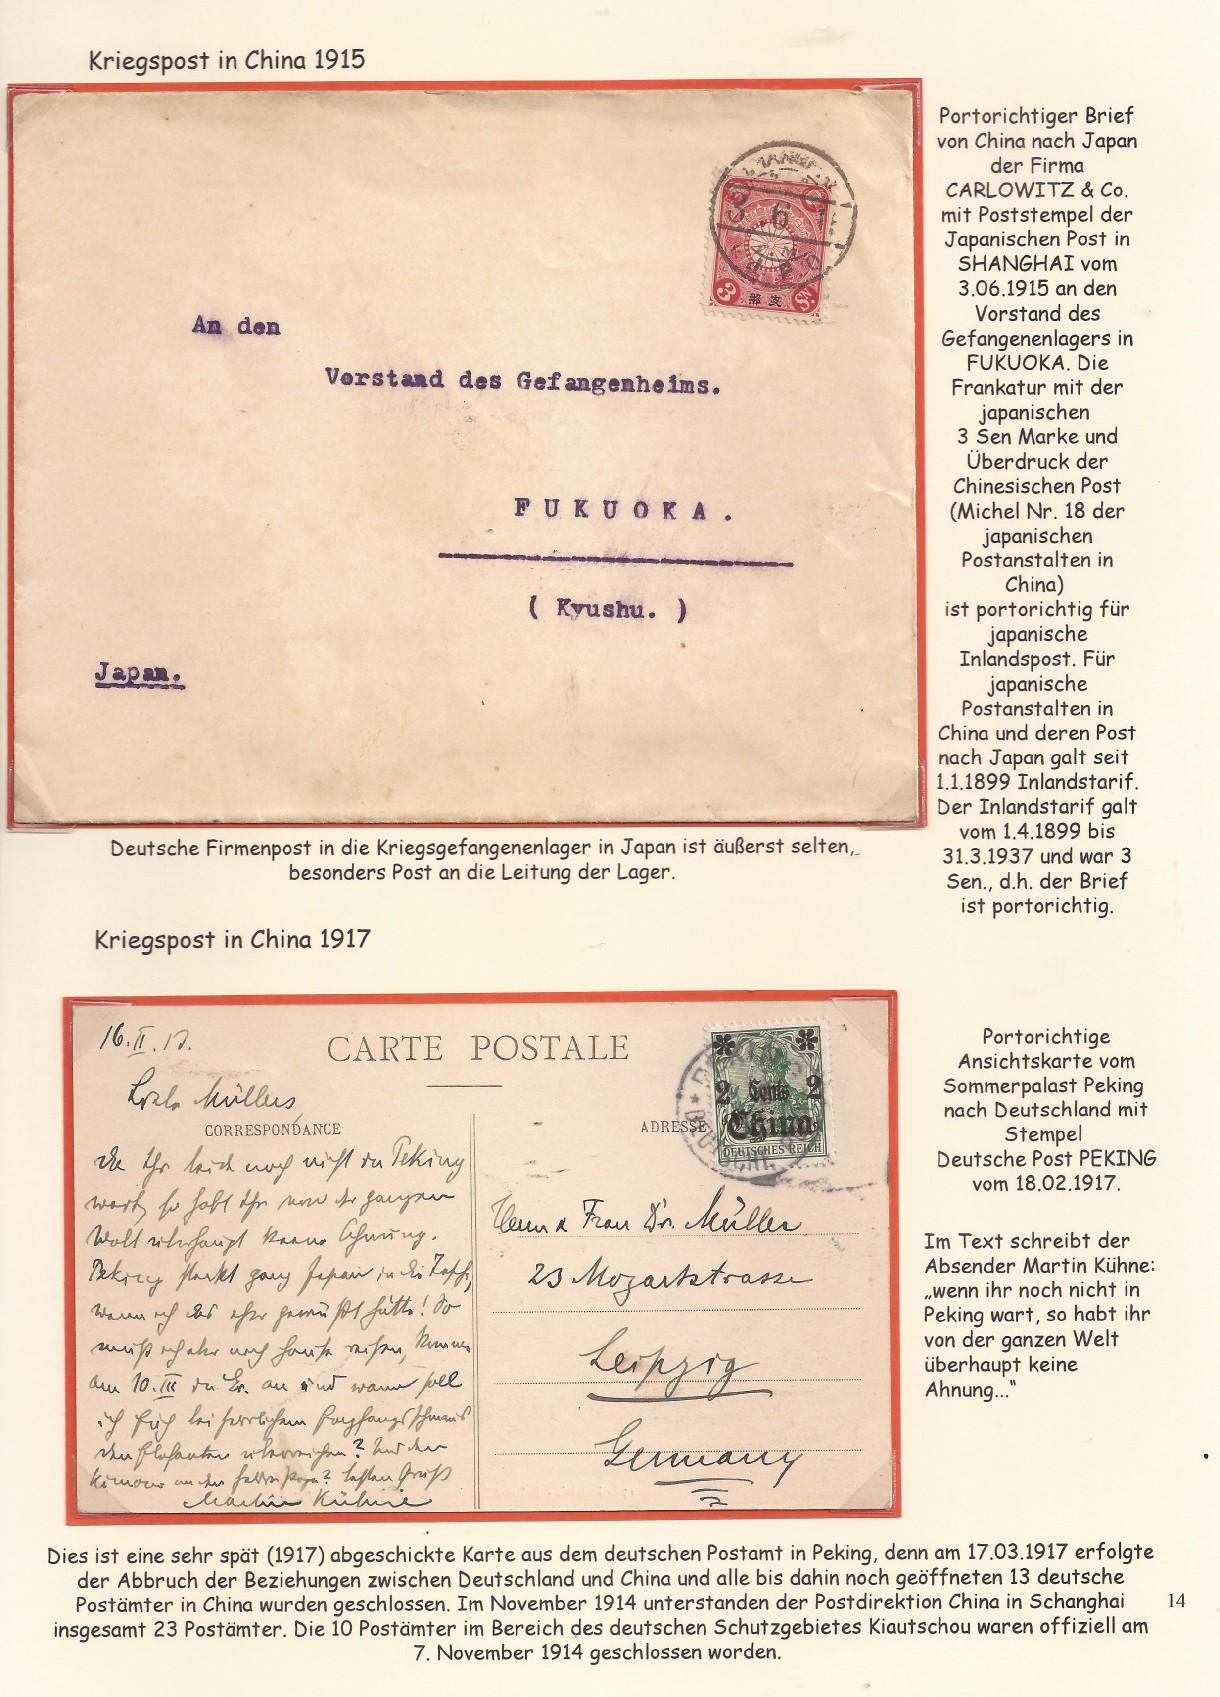 Kriegspost in China 1915
3
支那
An den
Vorstand des Gefangenheims.
FUKUOKA.
( Kyushu. )
Japan.
Portorichtiger Brief
von China nach Japan
der Firma
CARLOWITZ & Co.
mit Poststempel der
Japanischen Post in
SHANGHAI vom
3.06.1915 an den
Vorstand des
Gefangenenlagers in
FUKUOKA. Die
Frankatur mit der
japanischen
3 Sen Marke und
Überdruck der
Chinesischen Post
(Michel Nr. 18 der
japanischen
Postanstalten in
China)
ist portorichtig für
japanische
Inlandspost. Für
japanische
Postanstalten in
China und deren Post
nach Japan galt seit
1.1.1899 Inlandstarif.
Der Inlandstarif galt
vom 1.4.1899 bis
31.3.1937 und war 3
Sen., d.h. der Brief
ist portorichtig.
Deutsche Firmenpost in die Kriegsgefangenenlager in Japan ist äußerst selten,
besonders Post an die Leitung der Lager.
Kriegspost in China 1917
16.II.17.
CARTE POSTALE
Müllers,
CORRESPONDANCE
ADRESSE
2 Cents 2
China
DEUTSCHES REICH
Ihr noch nicht in Peking
wart, so habt Ihr von der ganzen
Welt überhaupt keine Ahnung.
Peking steckt ganz Japan in die Tasche,
wenn ich das eher gewußt hätte! So
muß ich aber nach Hause reisen, komme
am 10.III in an und wann soll
ich Euch bei herrlichem
den Elefanten überreichen? Und den
Kimono an den ? besten Gruß
Martin Kühne
Herrn & Frau Dr. Müller
23 Mozartstrasse
Leipzig
Germany
Portorichtige
Ansichtskarte vom
Sommerpalast Peking
nach Deutschland mit
Stempel
Deutsche Post PEKING
vom 18.02.1917.
Im Text schreibt der
Absender Martin Kühne:
„wenn ihr noch nicht in
Peking wart, so habt ihr
von der ganzen Welt
überhaupt keine
Ahnung...“
Dies ist eine sehr spät (1917) abgeschickte Karte aus dem deutschen Postamt in Peking, denn am 17.03.1917 erfolgte
der Abbruch der Beziehungen zwischen Deutschland und China und alle bis dahin noch geöffneten 13 deutsche
Postämter in China wurden geschlossen. Im November 1914 unterstanden der Postdirektion China in Schanghai
14
insgesamt 23 Postämter. Die 10 Postämter im Bereich des deutschen Schutzgebietes Kiautschou waren offiziell am
7. November 1914 geschlossen worden.